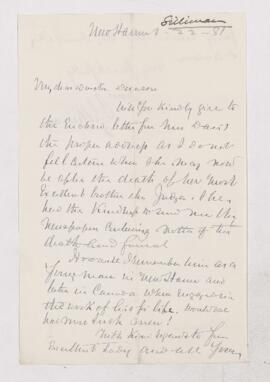 Silliman
New Haven - 22 - 81
My dear
Will you kindly give to
the Enclosed letter for Mrs Davis
the proper address as I do not
feel certain where she may now
be after the death of her most
Excellent brother the Judge. She
the kindness to send me the
Newspaper containing notice of his
death and funeral
I remember him as a
young man in New Haven and
later in when engaged in
the work of his life. Would we
had more such men!
With kind regards to your
Excellent Lady and all yours